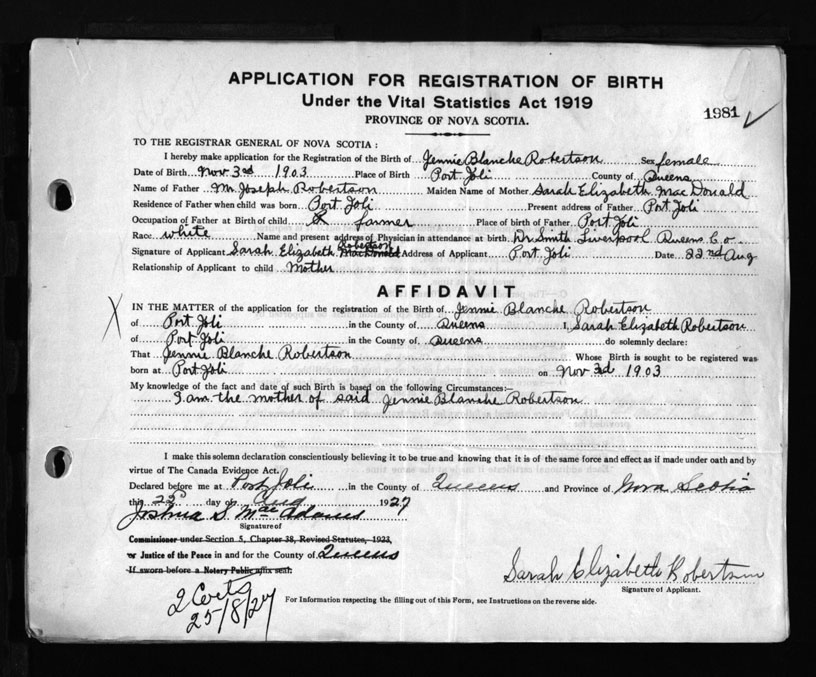 APPLICATION FOR REGISTRATION OF BIRTH
Under the Vital Statistics Act 1919
PROVINCE OF NOVA SCOTIA.
1981
TO THE REGISTRAR GENERAL OF NOVA SCOTIA:
I hereby make application for the Registration of the Birth of Jennie Blanche Robertson Sex female
Date of Birth Nov 3rd 1903 Place of Birth Port Joli County of Queens
Name of Father Wm. Joseph Robertson Maiden Name of Mother Sarah Elizabeth MacDonald
Residence of Father when child was born Port Joli Present address of Father Port Joli
Occupation of Father at Birth of child farmer Place of birth of Father Port Joli
Race white Name and present address of Physician in attendance at birth Dr. Smith Liverpool Queens Co.
Signature of Applicant Sarah Elizabeth MacDonald Robertson Address of Applicant Port Joli Date 22nd Aug
Relationship of Applicant to child Mother
AFFIDAVIT
IN THE MATTER of the application for the registration of the Birth of Jennie Blanche Robertson
of Port Joli in the County of Queens I, Sarah Elizabeth Robertson
of Port Joli in the County of Queens do solemnly declare:
That Jennie Blanche Robertson Whose Birth is sought to be registered was
born at Port Joli on Nov 3rd 1903
My knowledge of the fact and date of such Birth is based on the following Circumstances:—
I am the mother of said Jennie Blanche Robertson
I make this solemn declaration conscientiously believing it to be true and knowing that it is of the same force and effect as if made under oath and by
virtue of The Canada Evidence Act.
Declared before me at Port Joli in the County of Queens and Province of Nova Scotia
this 22d day of Aug 1927
Joshua S. MacAdams
Signature of
Commissioner under Section 5, Chapter 38, Revised Statutes, 1923,
or Justice of the Peace in and for the County of Queens
If sworn before a Notary Public affix seal.
Sarah Elizabeth Robertson
Signature of Applicant.
2 Certs
25/8/27
For Information respecting the filling out of this Form, see Instructions on the reverse side.